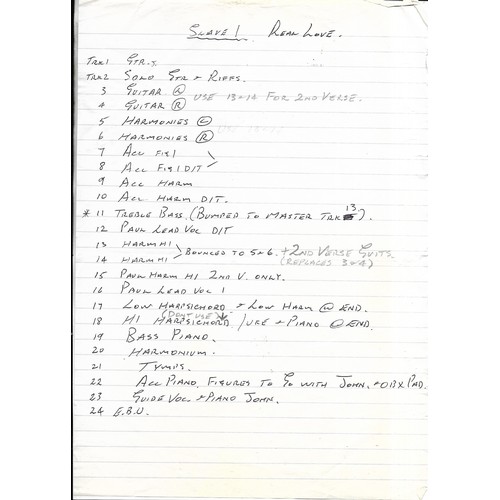 SLAVE 1 REAL LOVE.
TRK1 GTR.S
TRK2 SOLO GTR + RIFFS.
3 GUITAR L
4 GUITAR R USE 13+14 FOR 2ND VERSE.
5 HARMONIES L
6 HARMONIES R
7 ACC FIG 1
8 ACC FIG 1 DIT
9 ACC HARM
10 ACC HARM DIT.
* 11 TREBLE BASS. (BUMPED TO MASTER TRK 13).
12 PAUL LEAD VOC DIT
13 HARM HI
14 HARM HI BOUNCED TO 5+6. + 2ND VERSE GUITS. (REPLACES 3+4)
15 PAUL HARM HI 2ND V. ONLY.
16 PAUL LEAD VOC 1
17 LOW HARPSICHORD + LOW HARM @ END.
(DON'T USE)
18 HI HARPSICHORD / UKE + PIANO @ END.
19 BASS PIANO.
20 HARMONIUM.
21 TYMPS.
22 ACC PIANO FIGURES TO GO WITH JOHN. + OBX PAD.
23 GUIDE VOC + PIANO JOHN.
24 E.B.U.